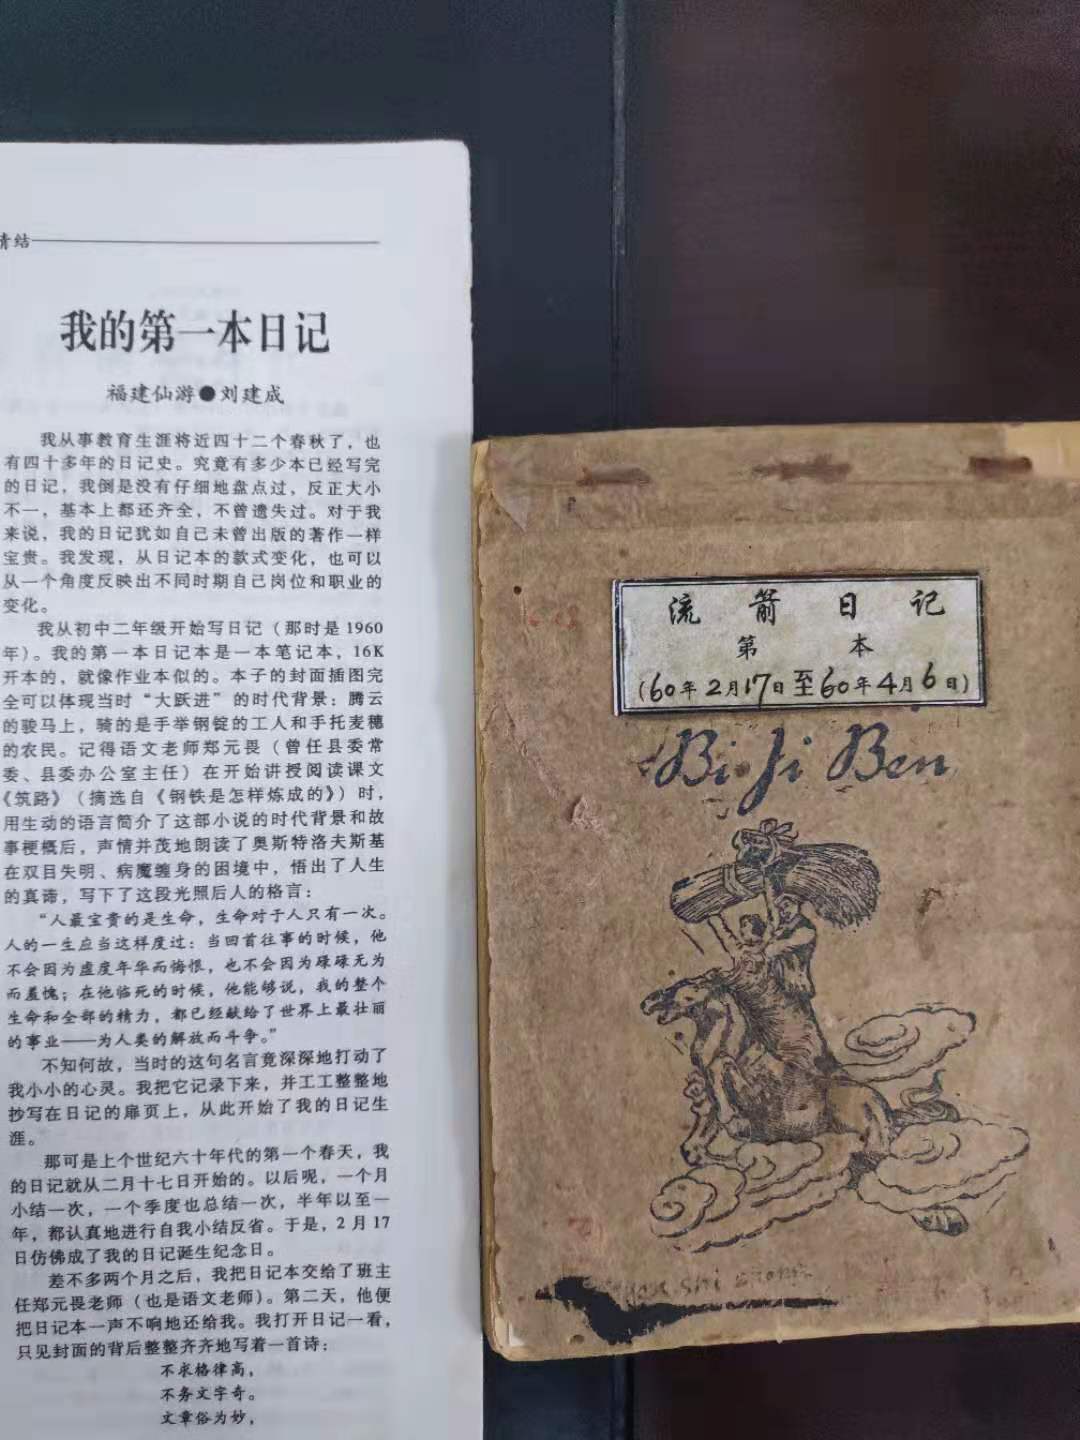 情结
我的第一本日记
福建仙游●刘建成
我从事教育生涯将近四十二个春秋了，也
有四十多年的日记史。究竟有多少本已经写完
的日记，我倒是没有仔细地盘点过，反正大小
不一，基本上都还齐全，不曾遗失过。对于我
来说，我的日记犹如自己未曾出版的著作一样
宝贵。我发现，从日记本的款式变化，也可以
从一个角度反映出不同时期自己岗位和职业的
变化。
我从初中二年级开始写日记（那时是1960
年）。我的第一本日记本是一本笔记本，16K
开本的，就像作业本似的。本子的封面插图完
全可以体现当时“大跃进”的时代背景：腾云
的骏马上，骑的是手举钢锭的工人和手托麦穗
的农民。记得语文老师郑元畏（曾任县委常
委、县委办公室主任）在开始讲授阅读课文
《筑路》（摘选自《钢铁是怎样炼成的》）时，
用生动的语言简介了这部小说的时代背景和故
事梗概后，声情并茂地朗读了奥斯特洛夫斯基
在双目失明、病魔缠身的困境中，悟出了人生
的真谛，写下了这段光照后人的格言：
“人最宝贵的是生命，生命对于人只有一次。
人的一生应当这样度过：当回首往事的时候，他
不会因为虚度年华而悔恨，也不会因为碌碌无为
而羞愧；在他临死的时候，他能够说，我的整个
生命和全部的精力，都已经献给了世界上最壮丽
的事业——为人类的解放而斗争。”
不知何故，当时的这句名言竟深深地打动了
我小小的心灵。我把它记录下来，并工工整整地
抄写在日记的扉页上，从此开始了我的日记生
涯。
那可是上个世纪六十年代的第一个春天，我
的日记就从二月十七日开始的。以后呢，一个月
小结一次，一个季度也总结一次，半年以至一
年，都认真地进行自我小结反省。于是，2月17
日仿佛成了我的日记诞生纪念日。
差不多两个月之后，我把日记本交给了班主
任郑元畏老师（也是语文老师）。第二天，他便
把日记本一声不响地还给我。我打开日记一看，
只见封面的背后整整齐齐地写着一首诗：
不求格律高，
不务文字奇。
文章俗为妙，
流箭日记
第 本
(60年2月17日至60年4月6日)
Bi Ji Ben